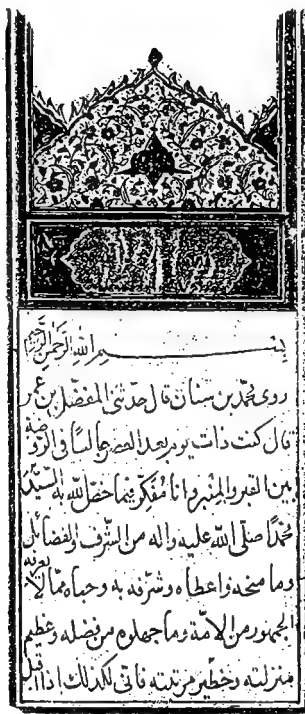 بسم الله الرحمن الرحيم
روى محمد بن سنان قال حدثنى المفضّل بن عمر
قال كنت ذات يوم بعد العصر جالسًا فى الروضة
بين القبر والمنبر وانا مُفكّر فيما خصّ الله به السيّد
محمدًا صلّى الله عليه واله من الشرف والفضائل
وما منحه واعطاه وشرّفه به وحباه ممّا لا يعرفه
الجمهور من الامّة وما جهلوه من فضله وعظيم
منزلته وخطير مرتبته فانى لكذلك اذا اقبل